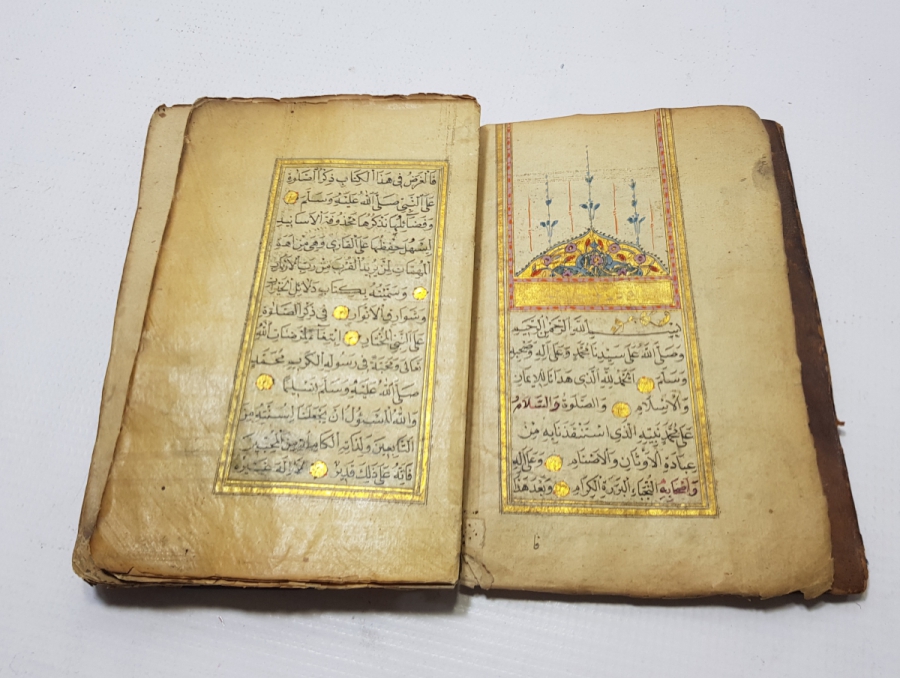 بسم الله الرحمن الرحيم
وصلى الله على سيدنا محمد وعلى اله وصحبه
وسلم الحمد لله الذى هدانا للايمان
والاسلام والصلوة والسلام
على محمد نبيه الذى استنقذنا به من
عبادة الاوثان والاصنام وعلى اله
واصحابه النجباء البررة الكرام وبعد هذا
فا
فالغرض فى هذا الكتاب ذكر الصلوة
على النبى صلى الله عليه وسلم
وفضائلها نذكرها محذوفة الاسانيد
ليسهل حفظها على القارى وهى من اهم
المهمات لمن يريد القرب من رب الارباب
وسميته بكتاب دلائل الخيرات
وشوارق الانوار فى ذكر الصلوة
على النبى المختار ابتغاء لمرضات الله
تعالى ومحبة فى رسوله الكريم محمد
صلى الله عليه وسلم تسليما
والله المسئول ان يجعلنا لسنته من
التابعين ولذاته الكاملة من المحبين
فانه على ذلك قدير لا اله غيره